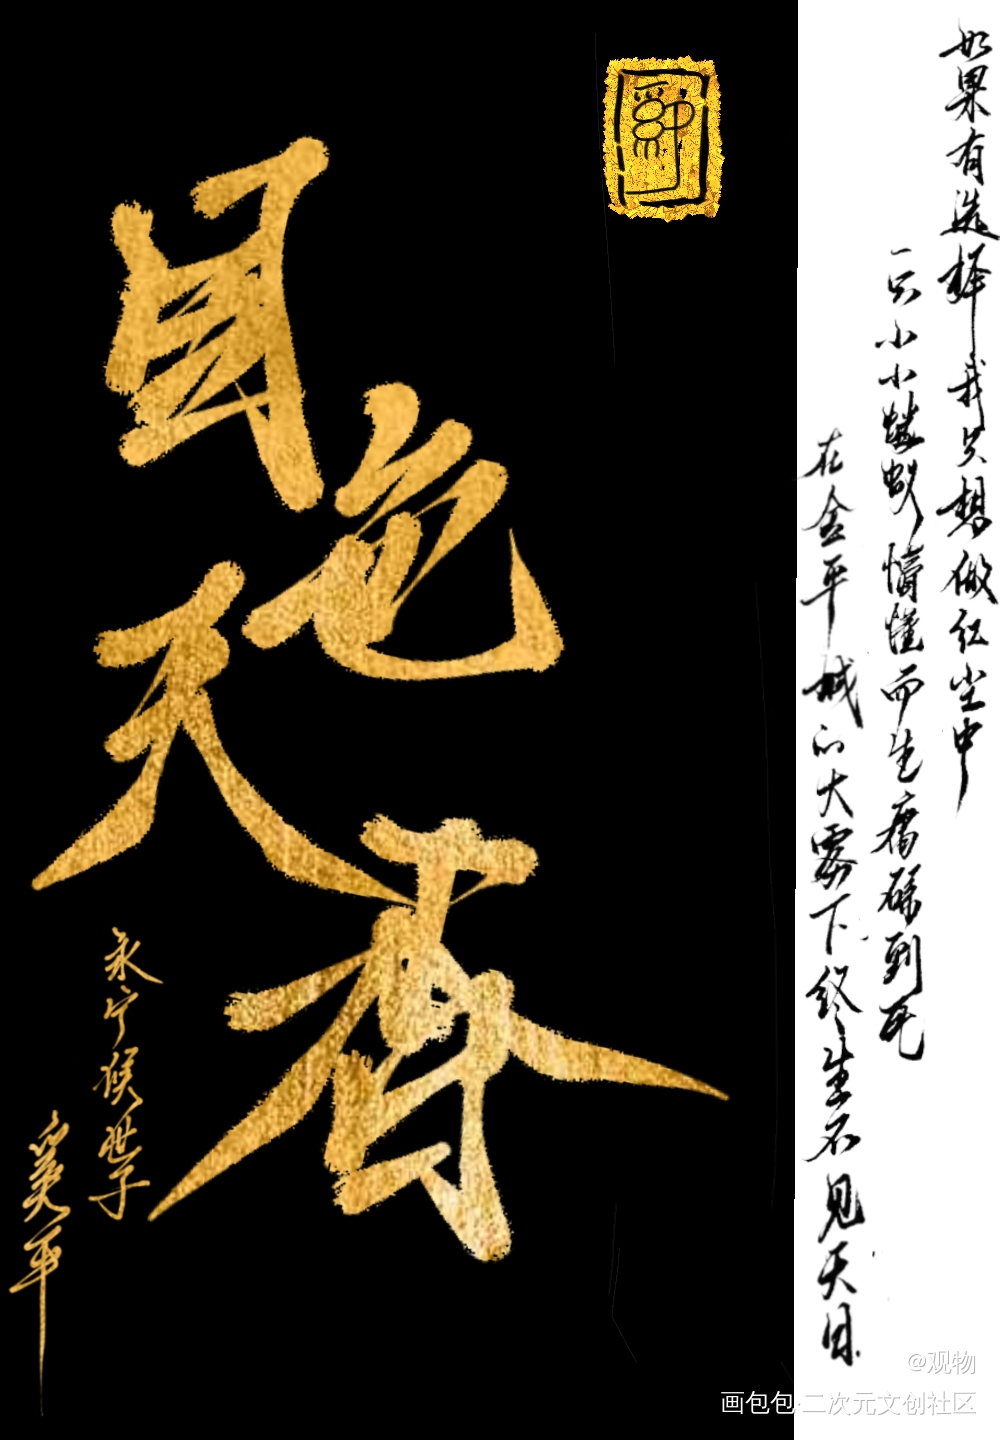 如果有选择我只想做红尘中
一只小小蝼蚁懵懂而生庸碌到死
在金平城的大雾下终生不见天日
国色天香
永宁侯世子
奚平
@观物
画包包·二次元文创社区